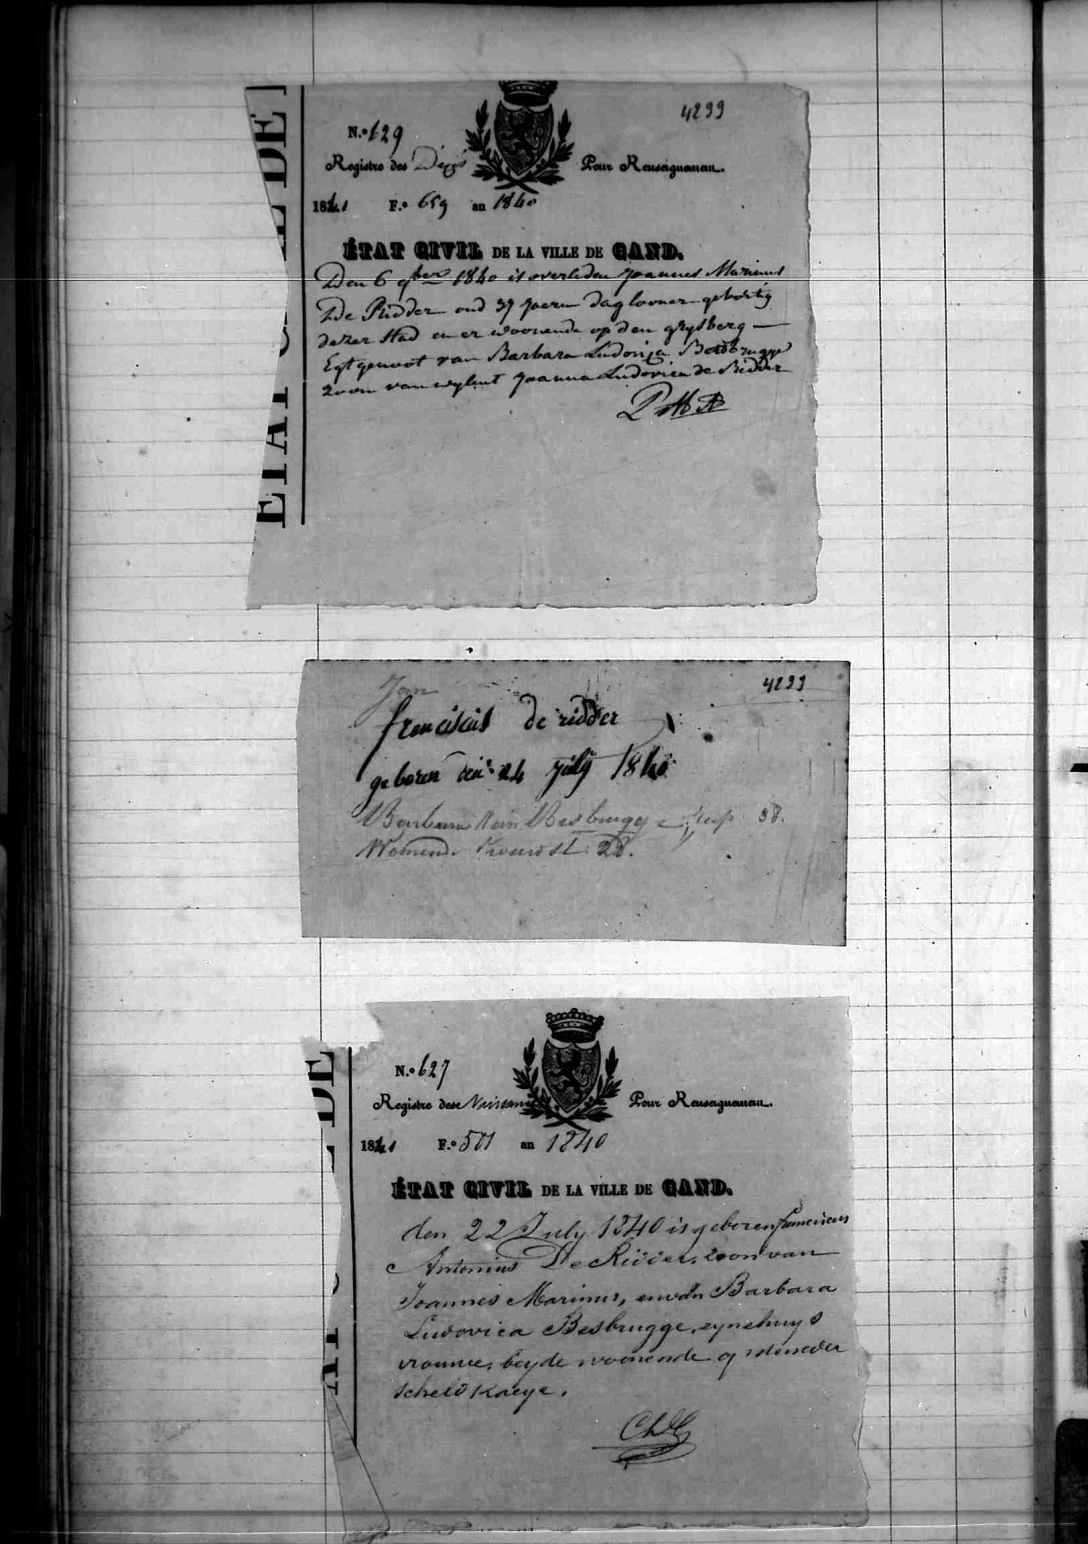 4299
N.º 629
Registre des Décès Pour Renseignemen.
1841 F.º 659 an 1840
ÉTAT CIVIL DE LA VILLE DE GAND.
Den 6 9ber 1840 is overleden Joannes Marinus
De Ridder oud 37 Jaeren daglooner gebortig
dezer stad en er woonende op den
Egtgenoot van Barbara Ludovica Besbrugge
zoon van wylent Joanna Ludovica de Ridder
ETAT DE
4299
Jan
franciscus de ridder
geboren den 24 July 1840
Barbara van Besbrugge 38.
Wonende 28.
N.º 627
Registre des Naissances Pour Renseignemen.
1841 F.º 501 an 1840
ÉTAT CIVIL DE LA VILLE DE GAND.
den 22 July 1840 is geboren franciscus
Antonius De Ridder, zoon van
Joannes Marinus, en van Barbara
Ludovica Besbrugge, zyne huys
vrouwe, beyde woonende op de neder
scheldkaeye.
DE